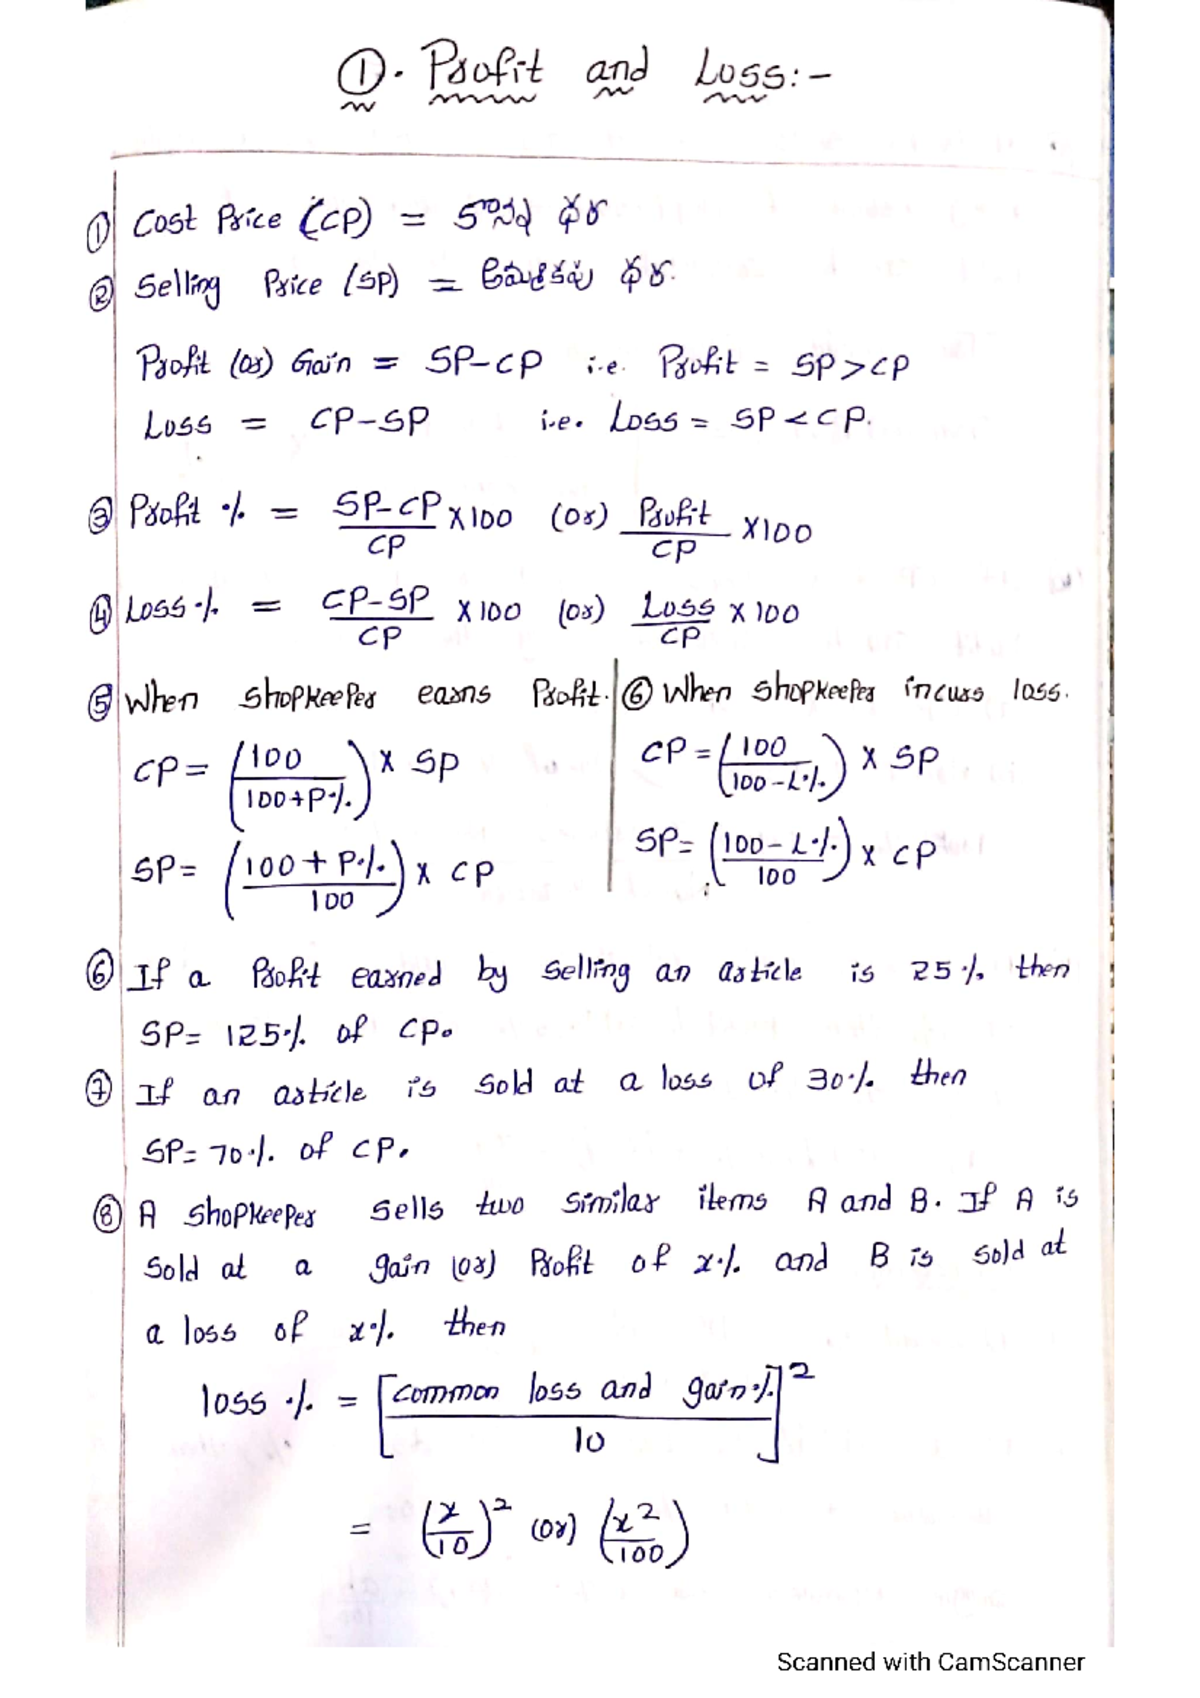 ①. Profit and Loss:-
① Cost Price (CP) = కొన్న ధర
② Selling Price (SP) = అమ్మకపు ధర.
Profit (or) Gain = SP-CP i.e. Profit = SP>CP
Loss = CP-SP i.e. Loss = SP<CP.
③ Profit % = SP-CP/CP X100 (or) Profit/CP X100
④ Loss % = CP-SP/CP X100 (or) Loss/CP X100
⑤ When shopkeeper earns Profit. ⑥ When shopkeeper incurs loss.
CP = (100/100+P%) X SP CP = (100/100-L%) X SP
SP = (100+P%/100) X CP SP = (100-L%/100) X CP
⑥ If a Profit earned by selling an article is 25% then
SP= 125% of CP.
⑦ If an article is sold at a loss of 30% then
SP= 70% of CP.
⑧ A shopkeeper sells two similar items A and B. If A is
sold at a gain (or) Profit of x% and B is sold at
a loss of x% then
loss % = [common loss and gain%/10]²
= (x/10)² (or) (x²/100)
Scanned with CamScanner